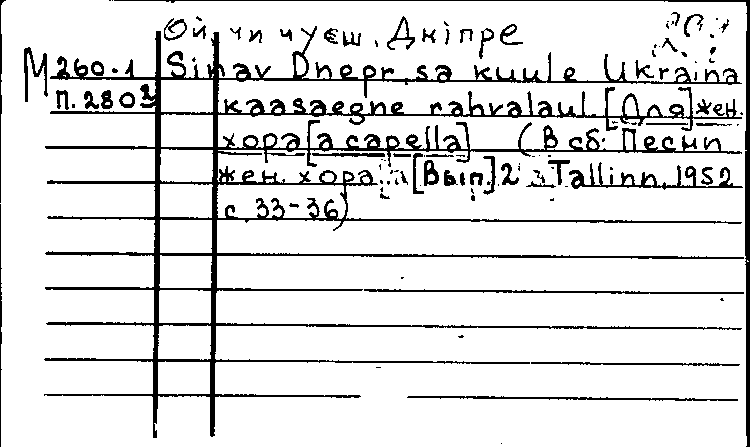 Ой, чи чуєш, Дніпре
М 260.1 Sinav Dnepr, sa kuule Ukraina
П.2803 kaasaegne rahvalaul. [Для] жен.
хора [a capella] (В сб: Песни
жен. хора. [Вып.] 2 Tallinn, 1952
с. 33-36)